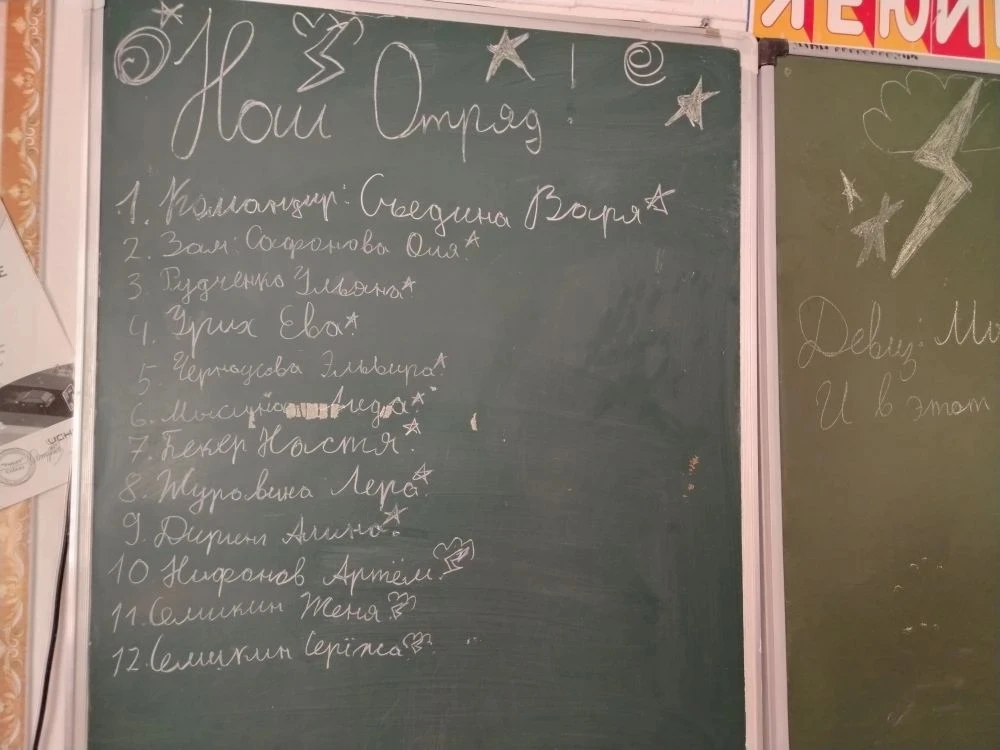 Наш Отряд!
1. Командир: Съедина Варя
2. Зам: Сафонова Оля
3. Рудченко Ульяна
4. Урих Ева
5. Эльвира
6.
7. Бекер Настя
8. Журавина Лера
9. Дирин Алина
10. Нифонов Артём.
11. Семикин Женя
12. Семикин Серёжа
ЛЕЮИ
Девиз: Мы
И в этот